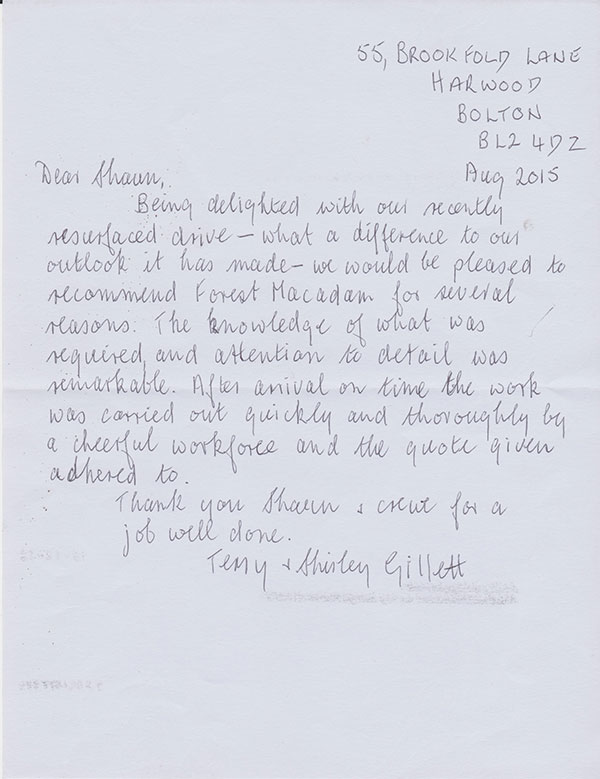 55, BROOKFOLD LANE
HARWOOD
BOLTON
BL2 4DZ
Aug 2015
Dear Shaun,
Being delighted with our recently
resurfaced drive - what a difference to our
outlook it has made - we would be pleased to
recommend Forest Macadam for several
reasons. The knowledge of what was
required and attention to detail was
remarkable. After arrival on time the work
was carried out quickly and thoroughly by
a cheerful workforce and the quote given
adhered to.
Thank you Shaun & crew for a
job well done.
Terry & Shirley Gillett